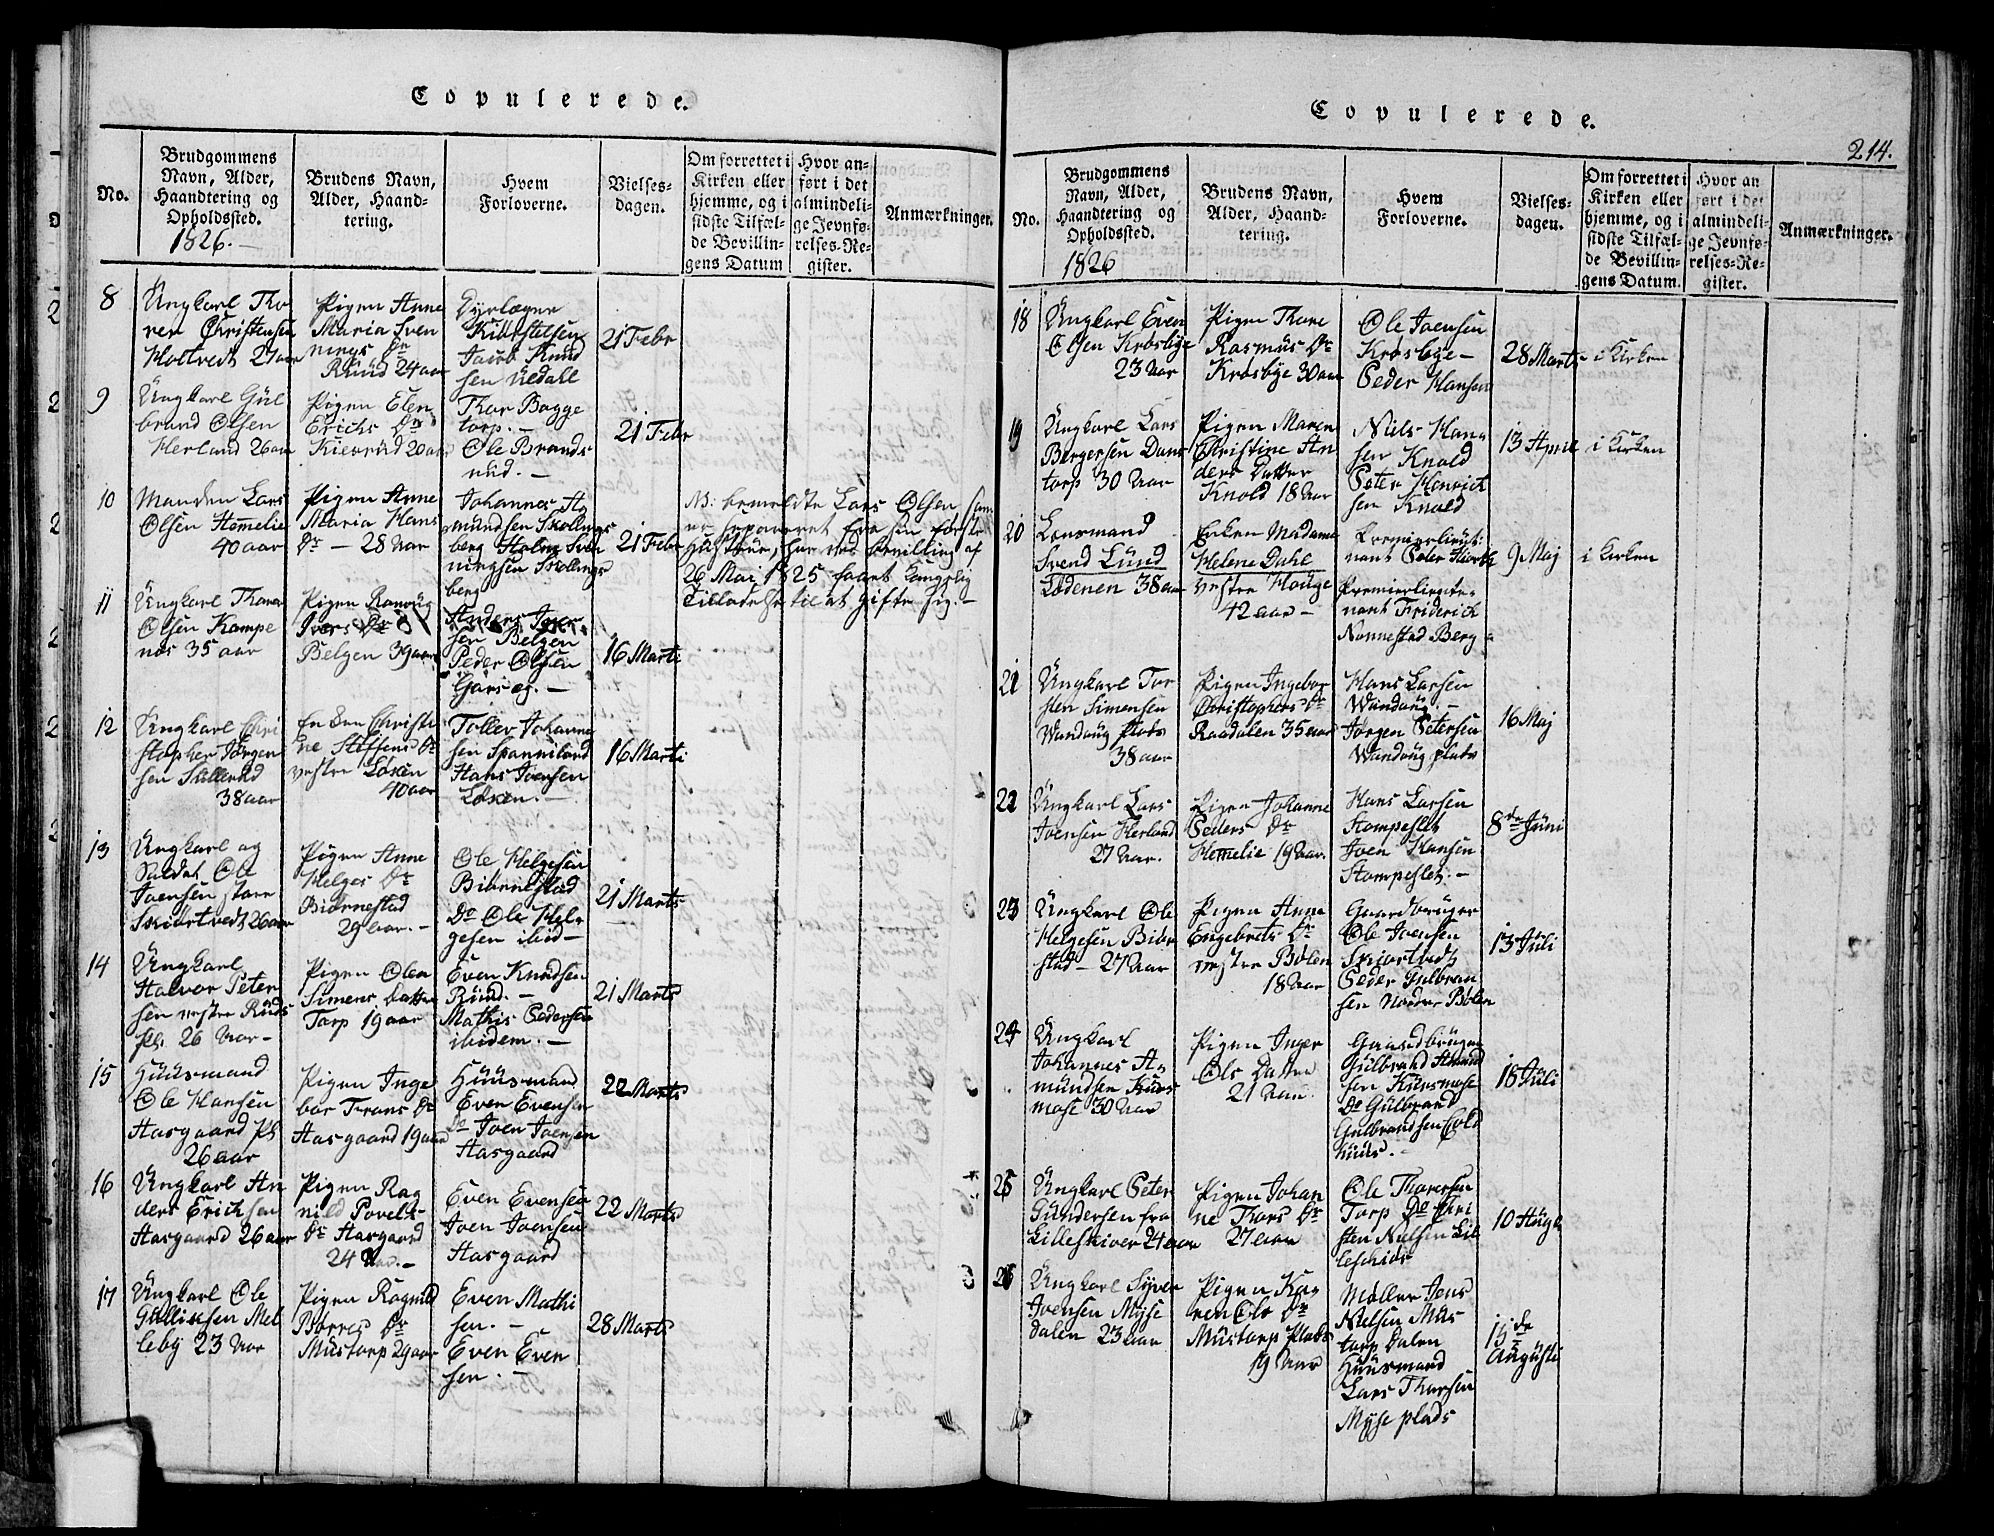 Copulerede.
No.
Brudgommens
Navn, Alder,
Haandtering og
Opholdssted.
1826.
Brudens Navn,
Alder, Haand-
tering.
Hvem
Forloverne.
Vielses-
dagen.
Om forrettet i
Kirken eller
hjemme, og i
sidste Tilfæl-
de Bevillin-
gens Datum
Hvor an-
ført i det
almindeli-
ge Jevnfø-
relses-Re-
gister.
Anmærkninger.
8
Ungkarl Tho
ren Christensen
Holtvedt 27 aar
Pigen Anne
Maria Sven
nings Dr
Ruud 24 aar
Dyrlæger
Jacob Knud
sen Uedall
21 Febr
9
Ungkarl Gul
brand Olsen
Herland 26 aar
Pigen Elen
Erichs Dr
Kiesrud 20 aar
Thor Bagge
torp.
Ole Brands
rud.
21 Febr
10
Manden Lars
Olsen Hemelie
40 aar
Pigen Anne
Maria Hans
Dr 28 Aar
Johannes A
mundsen Skollings
berg Halvor Sven
ningsen Skollings
berg
21 Febr
N: bemeldte Lars Olsen som
er separeret fra sin første
Hustrue, har ved bevilling af
26 Mai 1825 faaet Kongelig
Tilladelse til at gifte sig.
11
Ungkarl Thorer
Olsen Kampe
nas 35 aar
Pigen
Ivers Dr
Belgen 39 aar
Anders Iver
sen Belgen
Peder Olsen
16 Marti
12
Ungkarl Chri
stopher Jørgen
sen Skillerud
38 aar
Enken Christi
ne Steffens Dr
vestre Løken
40 aar
Tollev Johanne
sen Spanneland
Hans Joensen
Løken.
16 Marti
13
Ungkarl og
Saldat Ole
Joensen store
Skiærtvedt 26 aar
Pigen Anne
Helges Dr
Biørnestad
29 aar.
Ole Helgesen
Biørnestad
Do Ole Hel
gesen ibid
21 Marts
14
Ungkarl
Halvor Peter
sen vestre Ruds
pl. 26 Aar
Pigen Olea
Simens Datter
Torp 19 aar
Even Knudsen
Ruud.
Mathis Pedersen
ibidem.
21 Marts
15
Huusmand
Ole Hansen
Aasgaard Pl
26 aar
Pigen Inge
bor Frans Dr
Aasgaard 19 aar
Huusmand
Even Evensen
Do Joen Joensen
Aasgaard
22 Marts
16
Ungkarl An
ders Erichsen
Aasgaard 26 aar
Pigen Rag
nild Povels
Dr Aasgaard
24 Aar.
Even Evensen
Joen Joensen
Aasgaard
22 Marts
17
Ungkarl Ole
Gulliksen Mel
leby 23 Aar
Pigen Ragnild
Børres Dr
Mustorp 29 aar
Even Mathi
sen.
Even Even
sen.
28 Marts
Copulerede.
214.
No.
Brudgommens
Navn, Alder,
Haandtering og
Opholdssted.
1826
Brudens Navn,
Alder, Haand-
tering.
Hvem
Forloverne.
Vielses-
dagen.
Om forrettet i
Kirken eller
hjemme, og i
sidste Tilfæl-
de Bevillin-
gens Datum.
Hvor an
ført i det
almindeli-
ge Jevnfø-
relses-Re-
gister.
Anmærkninger.
18
Ungkarl Even
Olsen Krosbye
23 Aar
Pigen Thore
Rasmus Dr
Krosbye 30 aar
Ole Joensen
Krosbye
Peder Hansen
28 Marts
i Kirken
19
Ungkarl Lars
Bergersen Dans
torp 30 Aar
Pigen Maren
Christine An
ders Datter
Knold 18 Aar
Niels Han
sen Knold
Peter Henrich
sen Knold
13 April
i Kirken
20
Lensmand
Svend Lund
Lødenen 38 aar
Enken Madame
Helene Dahl
vestre Houge
42 aar
Premierlieut:
nant Peter
Premierlieute-
nant Friderich
Nannestad Berg
9 Maj
i Kirken
21
Ungkarl Tor
sten Simensen
Wandoug Plads
38 aar
Pigen Ingebor
Christophers Dr
Raadalen 35 aar
Hans Larsen
Wandoug.
Jørgen Petersen
Wandoug plads
16 Maj
22
Ungkarl Lars
Joensen Herland
27 Aar.
Pigen Johanne
Peders Dr
Hemelie 19 Aar.
Hans Larsen
Stompeslet
Joen Hansen
Stompeslet.
8de Juni
23
Ungkarl Ole
Helgesen Biør
stad 27 Aar
Pigen Anne
Engebrets Dr
vestre Bølen
18 Aar
Gaardbruger
Ole Joensen
Skiørtvedt
Peder Gulbran
sen Nordre Bølen
13 Juli
24
Ungkarl
Johannes A
mundsen Kuus
mose 30 Aar
Pigen Inger
Ols Datter
21 Aar
Gaardbruger
Gulbrand Amund
sen Kuusmose
Do Gulbrand
Gulbrandsen Eyld
huus.
18 Juli
25
Ungkarl Peter
Gundersen fra
Lilleskiver 24 aar
Pigen Johan
ne Thors Dr
27 aar
Ole Thorersen
Torp Do Chri
sten Nielsen Lil
leschiør
10 Aug
26
Ungkarl Syver
Joensen Myse
dalen 23 aar
Pigen Ka
ren Ols Dr
Mustorp Plads
19 Aar
Møller Jens
Nielsen Mus
torp Dalen
Huusmand
Lars Thorsen
Myse plads
15de
Augusti